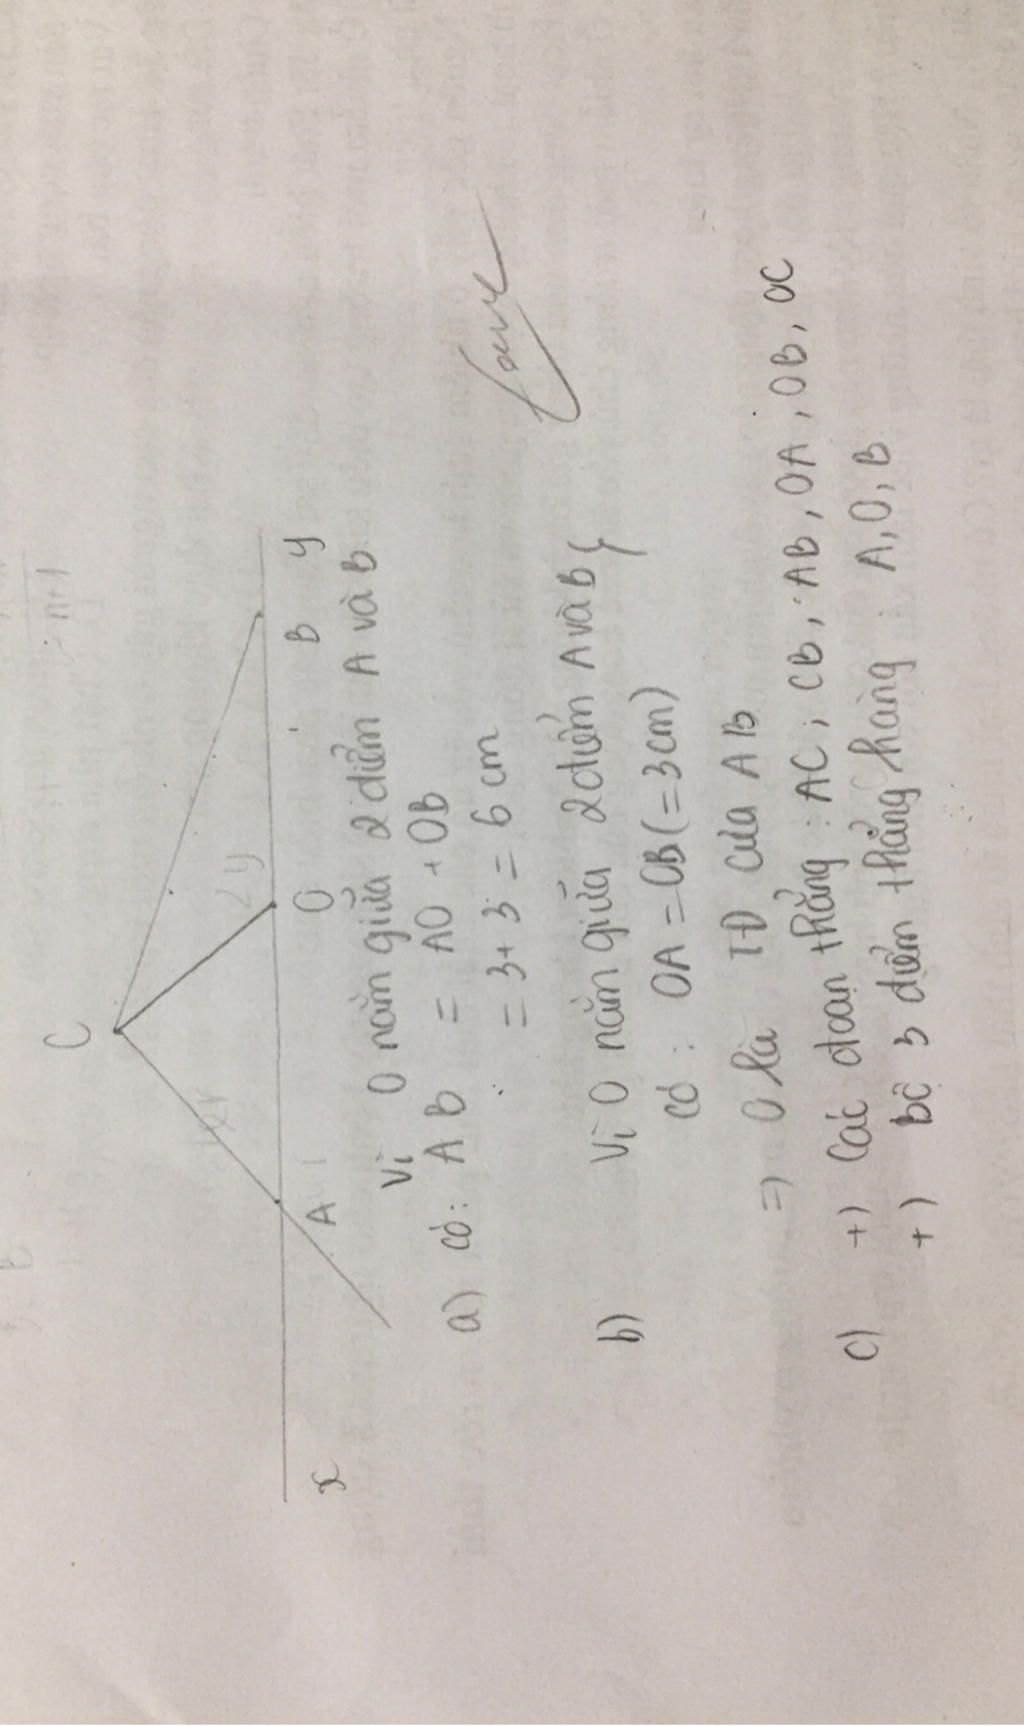 C
x
A
O
B
y
Vì O nằm giữa 2 điểm A và B
a) có: AB = AO + OB
= 3+3 = 6 cm
b) Vì O nằm giữa 2 điểm A và B }
có: OA = OB (= 3cm)
=> O là TĐ của AB
c) +) Các đoạn thẳng: AC; CB, AB, OA, OB, OC
+) bộ 3 điểm thẳng hàng: A, O, B